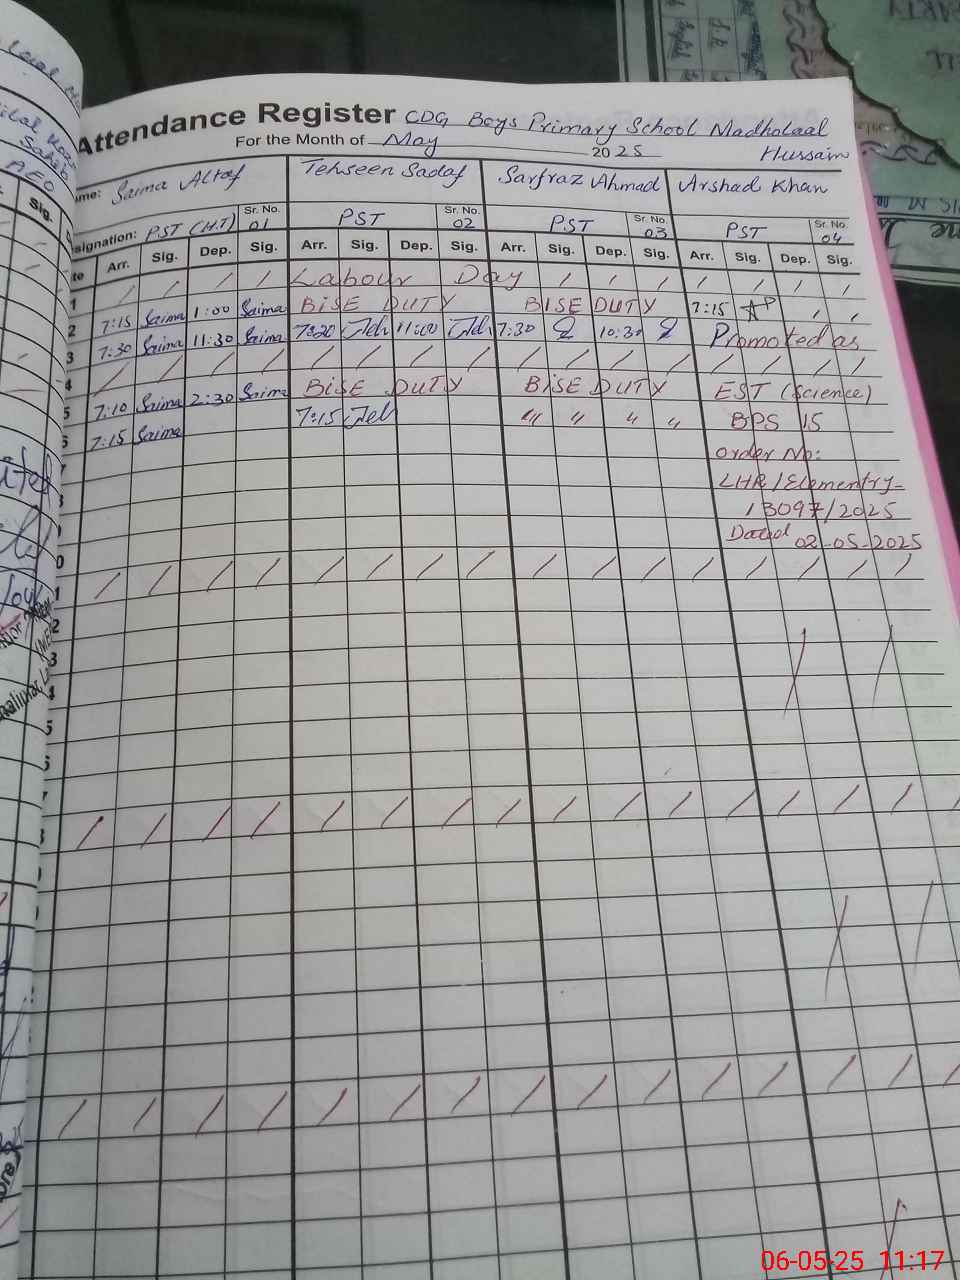 Attendance Register CDG Boys Primary School Madholaal
For the Month of May 2025 Hussain
Name: Saima Altaf Tehseen Sadaf Sarfraz Ahmad Arshad Khan
Designation: PST (H.T) Sr. No. 01 PST Sr. No. 02 PST Sr. No. 03 PST Sr. No. 04
Arr. Sig. Dep. Sig. Arr. Sig. Dep. Sig. Arr. Sig. Dep. Sig. Arr. Sig. Dep. Sig.
1 Labour Day
2 7:15 Saima 1:00 Saima BISE DUTY BISE DUTY 7:15
3 7:30 Saima 11:30 Saima 7:20 11:00 7:30 10:30 Promoted as
4
5 7:10 Saima 2:30 Saima BISE DUTY BISE DUTY EST (Science)
6 7:15 Saima 7:15 " " " " BPS 15
Order No:
LHR/Elementry-
13097/2025
Dated 02-05-2025
AEO
Sig.
06-05-25 11:17